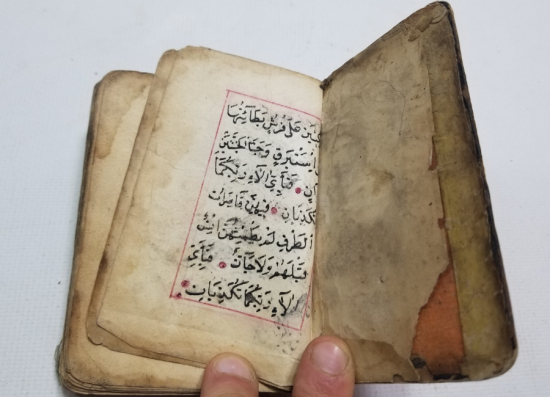 عَلَى فُرُشٍ بَطَآئِنُهَا
اِسْتَبْرَقٍ وَجَنَا الْجَنَّتَيْنِ
فَبِأَيِّ اٰلَآءِ رَبِّكُمَا
تُكَذِّبَانِ فِيهِنَّ قَاصِرَاتُ
الطَّرْفِ لَمْ يَطْمِثْهُنَّ اِنْسٌ
قَبْلَهُمْ وَلَا جَآنٌّ فَبِأَيِّ
اٰلَآءِ رَبِّكُمَا تُكَذِّبَانِ